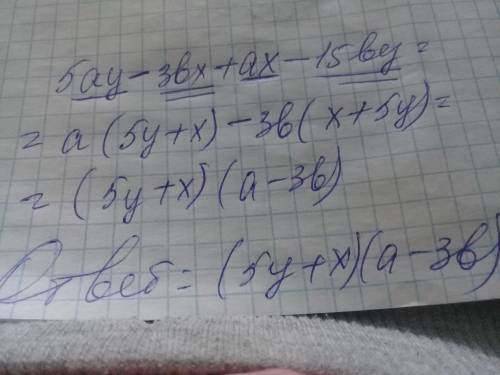 5ay - 3bx + ax - 15by =
= a (5y + x) - 3b (x + 5y) =
= (5y + x) (a - 3b)
Ответ = (5y + x) (a - 3b)